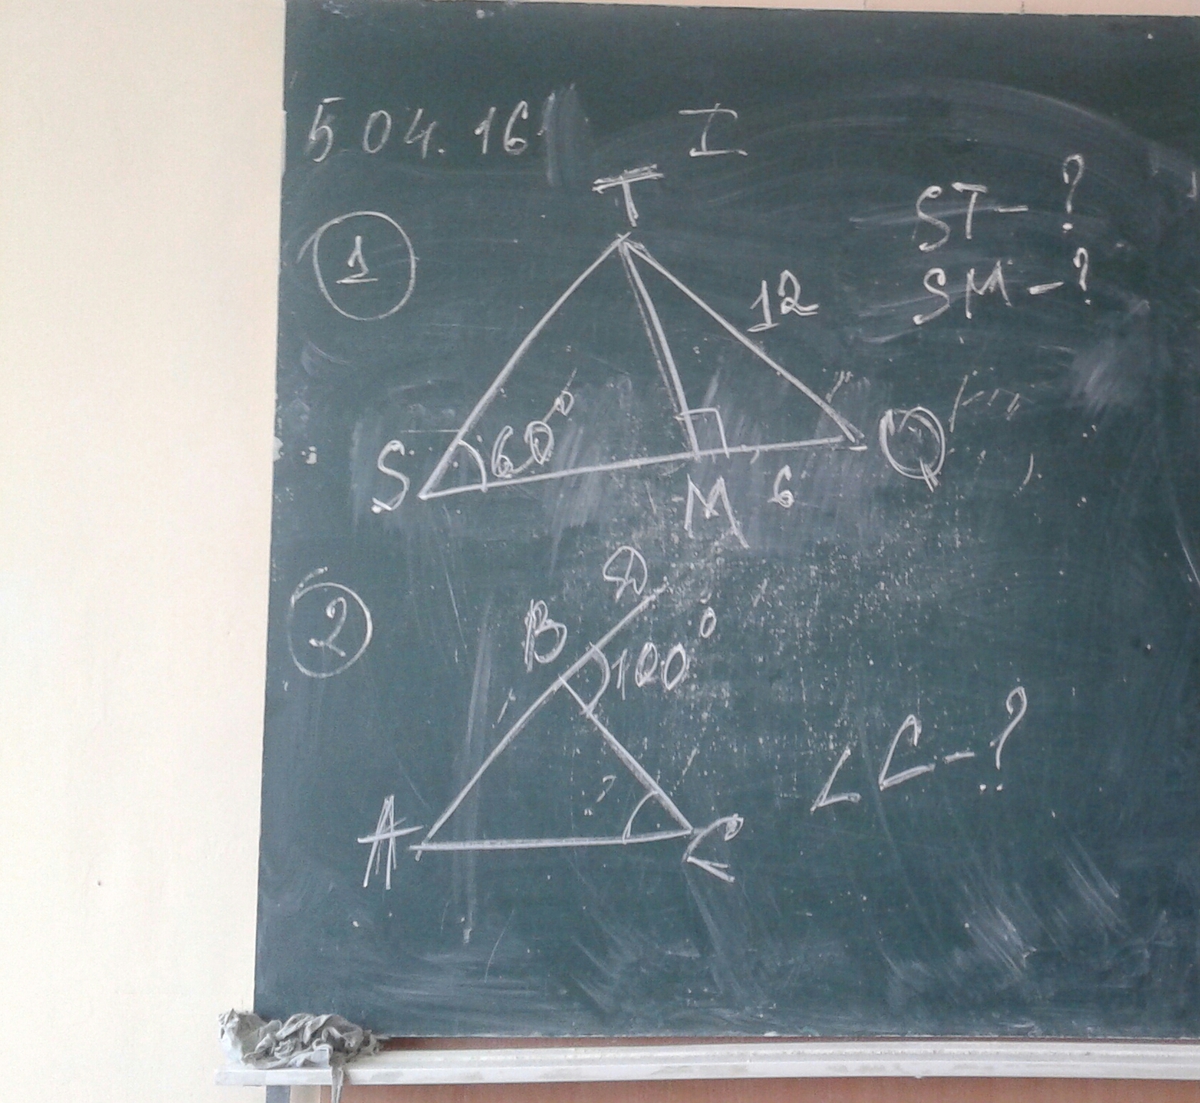 5.04.16
I
1
T
ST - ?
SM - ?
12
S
60°
M
6
Q
2
D
B
100°
∠C - ?
A
C